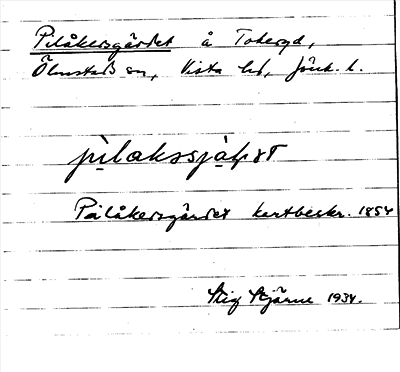 Pilåkersgärdet å Tokeryd,
Ölmstads sn, Vista hd, Jönk. l.
Pålåkersgärdet kartbeskr. 1854
Stig Stjärne 1934.